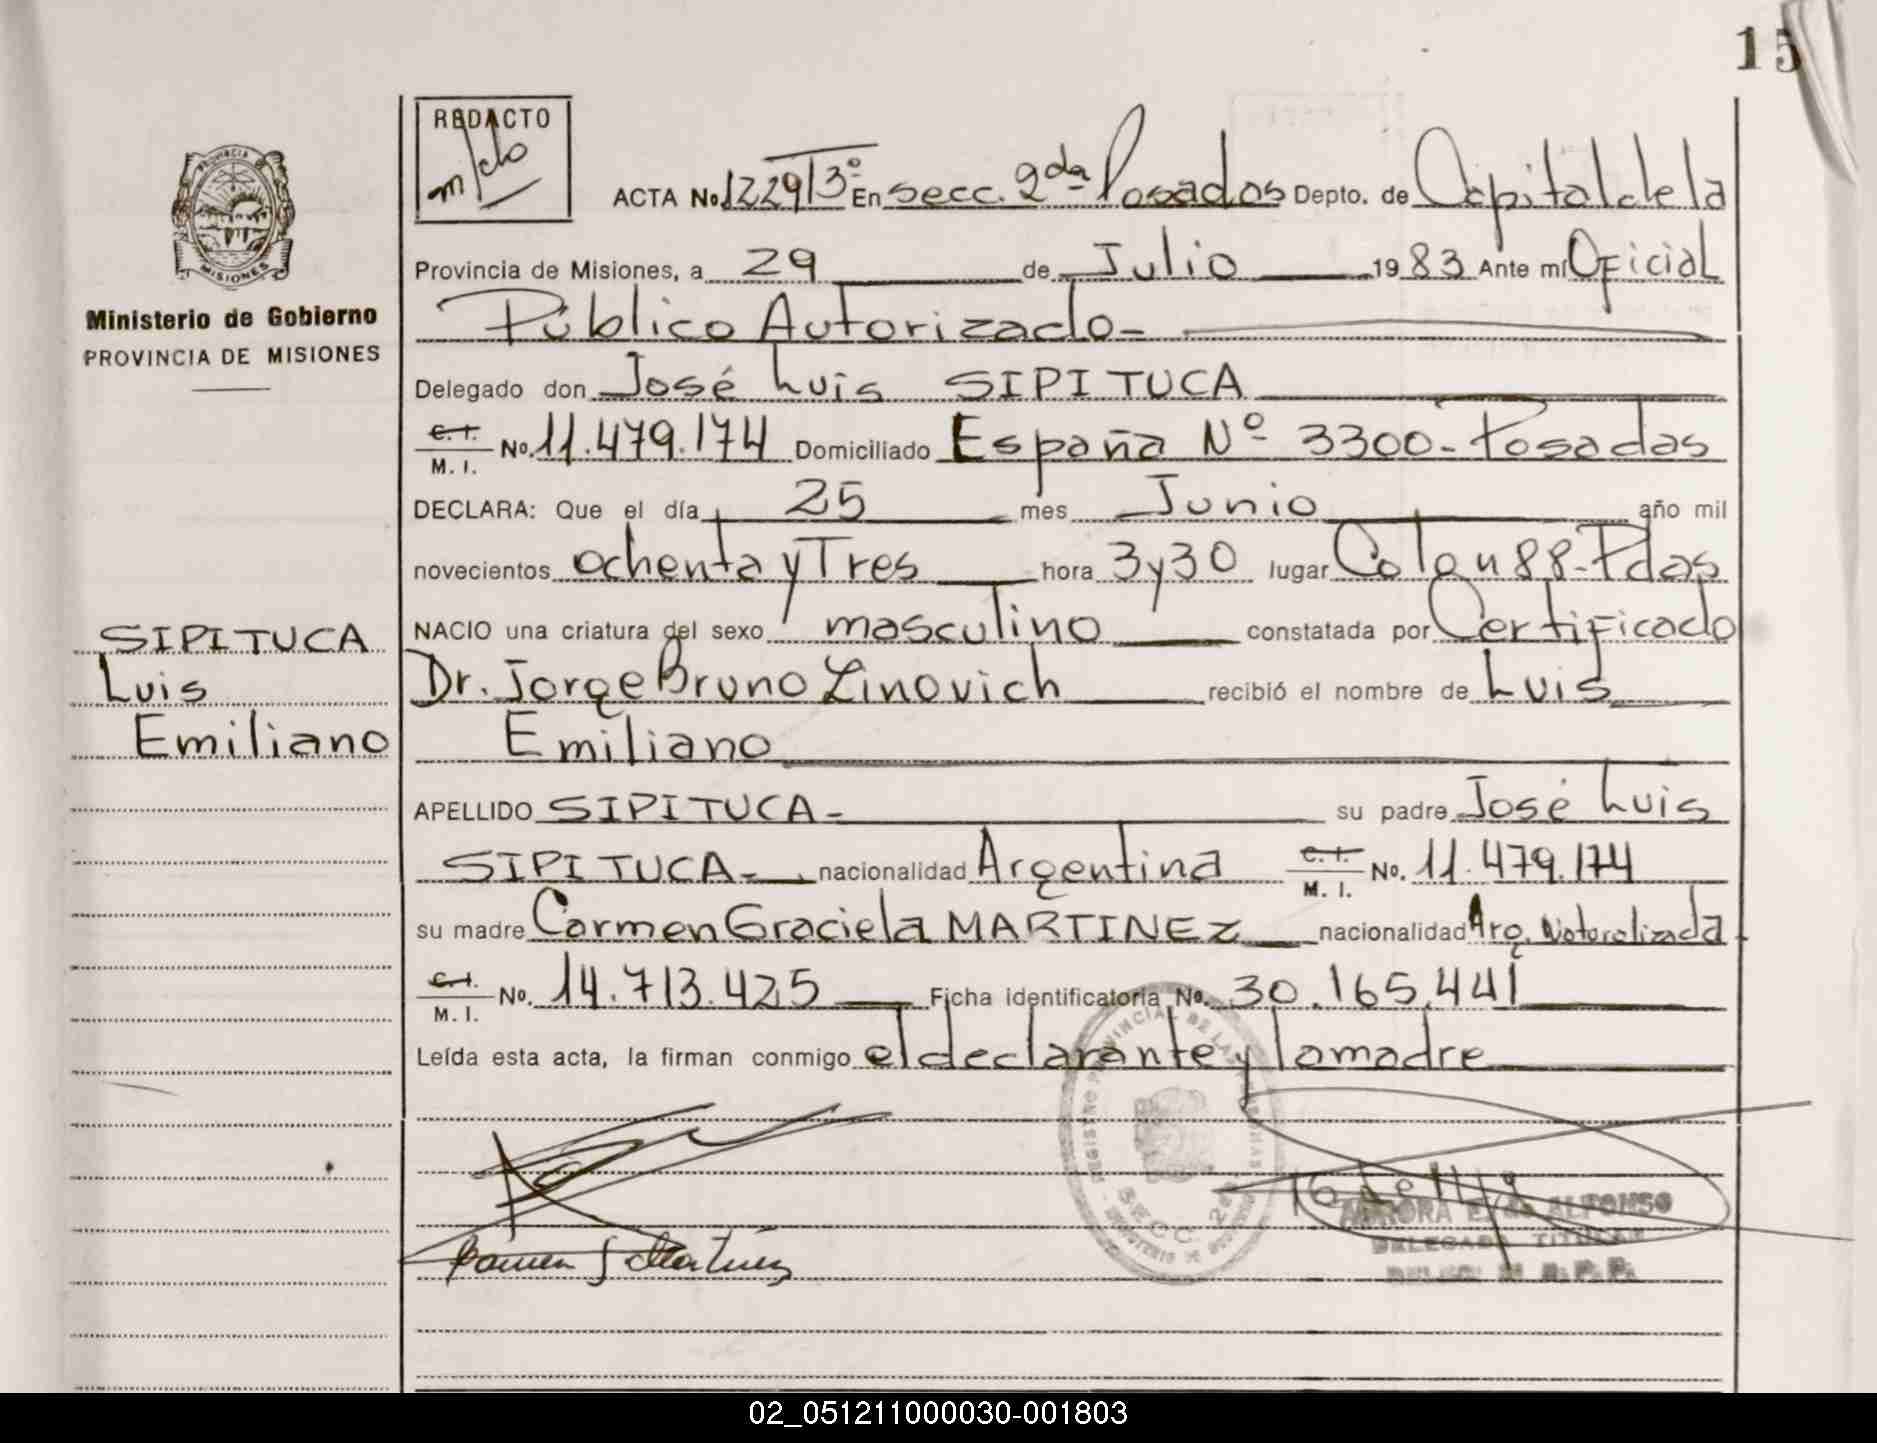 15
REDACTO
PROVINCIA
MISIONES
Ministerio de Gobierno
PROVINCIA DE MISIONES
ACTA No. 1229 T 3º En secc. 2da Posadas Depto. de Capital de la
Provincia de Misiones, a 29 de Julio 1983 Ante mí Oficial
Público Autorizado-
Delegado don José Luis SIPITUCA
C. I. M. I. No. 11.479.174 Domiciliado España Nº 3300-Posadas
DECLARA: Que el día 25 mes Junio año mil
novecientos ochenta y Tres hora 3 y 30 lugar 88-Pdas
SIPITUCA
Luis
Emiliano
NACIO una criatura del sexo masculino constatada por Certificado
Dr. Jorge Bruno Linovich recibió el nombre de Luis
Emiliano
APELLIDO SIPITUCA- su padre José Luis
SIPITUCA- nacionalidad Argentina C. I. M. I. No. 11.479.174
su madre Carmen Graciela MARTINEZ nacionalidad Arg. Naturalizada
C. I. M. I. No. 14.713.425 Ficha identificatoria No. 30.165.441
Leída esta acta, la firman conmigo el declarante y la madre
REGISTRO PROVINCIAL DE LAS PERSONAS
SECC. 2da
MINISTERIO DE GOBIERNO
Carmen G Martínez
ALFONSO
DELEGADA TITULAR
R. P. P.
02_051211000030-001803